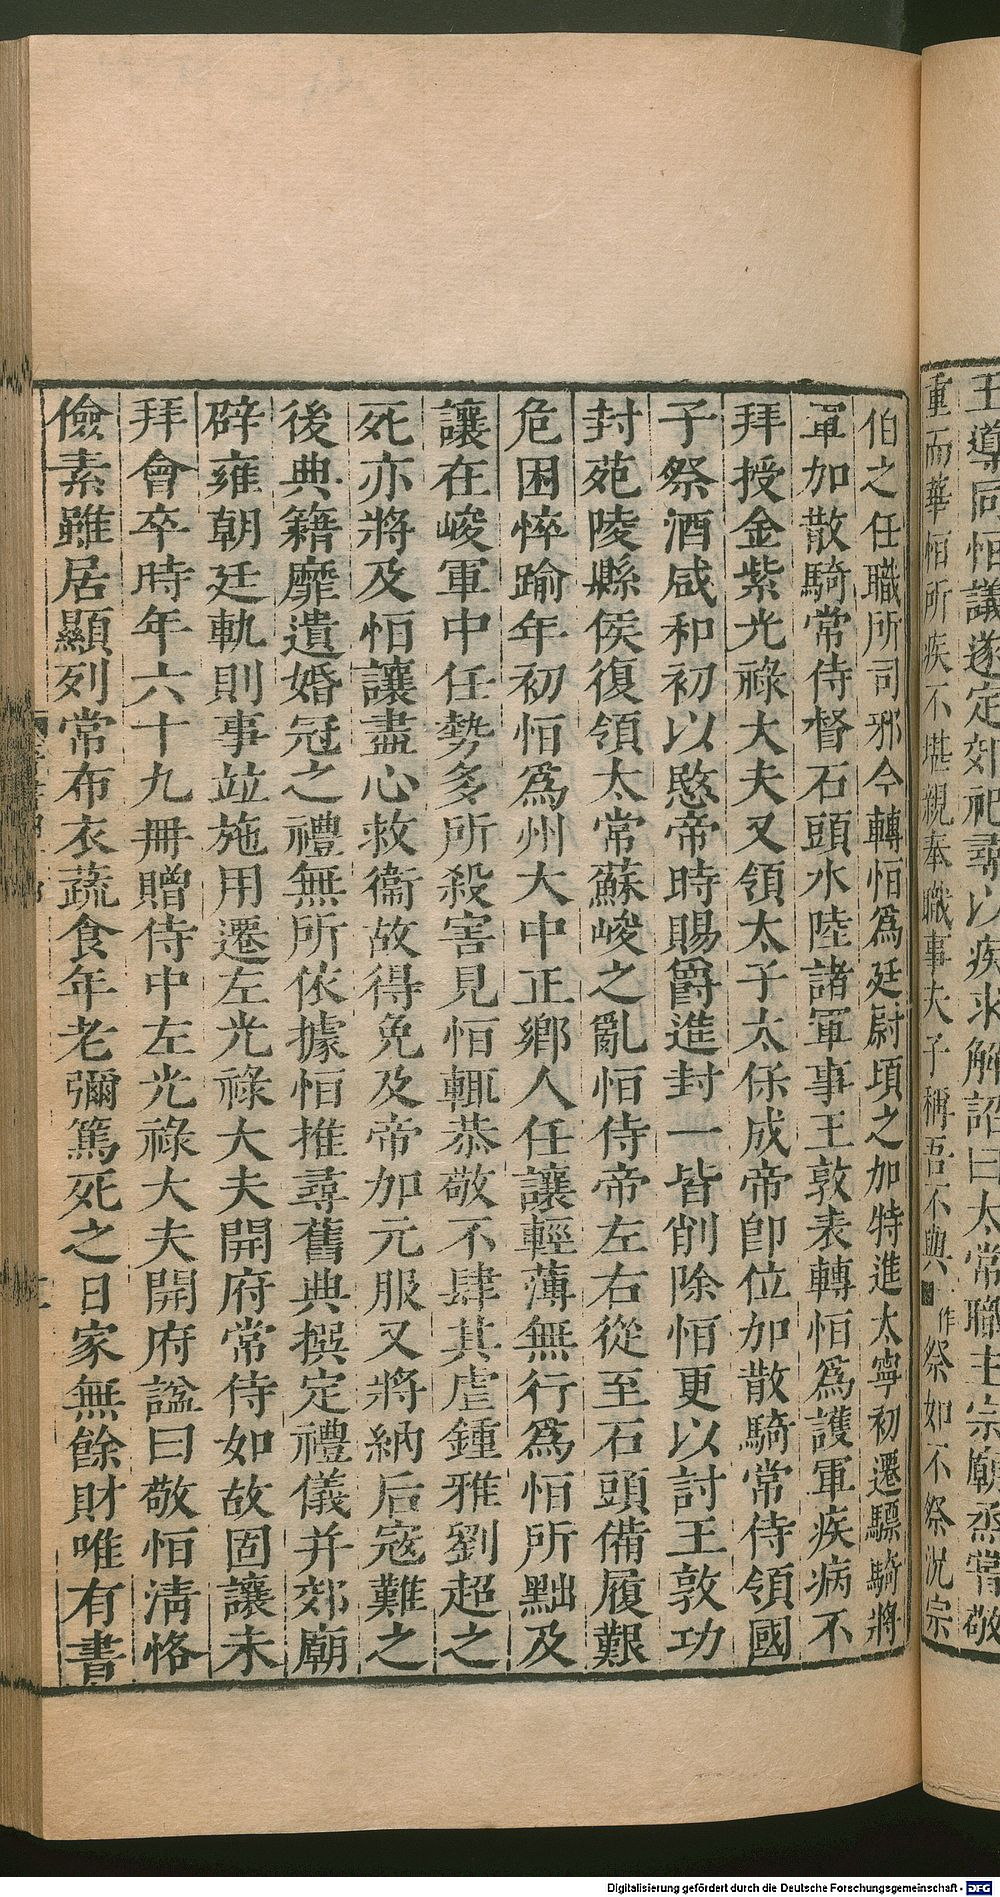 王導同恒議遂定郊祀尋以疾求解詔曰太常職主宗廟烝嘗敬
重而華恒所疾不堪親奉職事夫子稱吾不與一作祭如不祭況宗
伯之任職所司邪今轉恒為廷尉頃之加特進太寧初遷驃騎將
軍加散騎常侍督石頭水陸諸軍事王敦表轉恒為護軍疾病不
拜授金紫光祿大夫又領太子太保成帝即位加散騎常侍領國
子祭酒咸和初以愍帝時賜爵進封一皆削除恒更以討王敦功
封苑陵縣侯復領太常蘇峻之亂恒侍帝左右從至石頭備履艱
危困悴踰年初恒為州大中正鄉人任讓輕薄無行為恒所黜及
讓在峻軍中任勢多所殺害見恒輒恭敬不肆其虐鍾雅劉超之
死亦將及恒讓盡心救衞故得免及帝加元服又將納后寇難之
後典籍靡遺婚冠之禮無所依據恒推尋舊典撰定禮儀并郊廟
辟雍朝廷軌則事竝施用遷左光祿大夫開府常侍如故固讓未
拜會卒時年六十九冊贈侍中左光祿大夫開府諡曰敬恒清恪
儉素雖居顯列常布衣蔬食年老彌篤死之日家無餘財唯有書
Digitalisierung gefördert durch die Deutsche Forschungsgemeinschaft - DFG